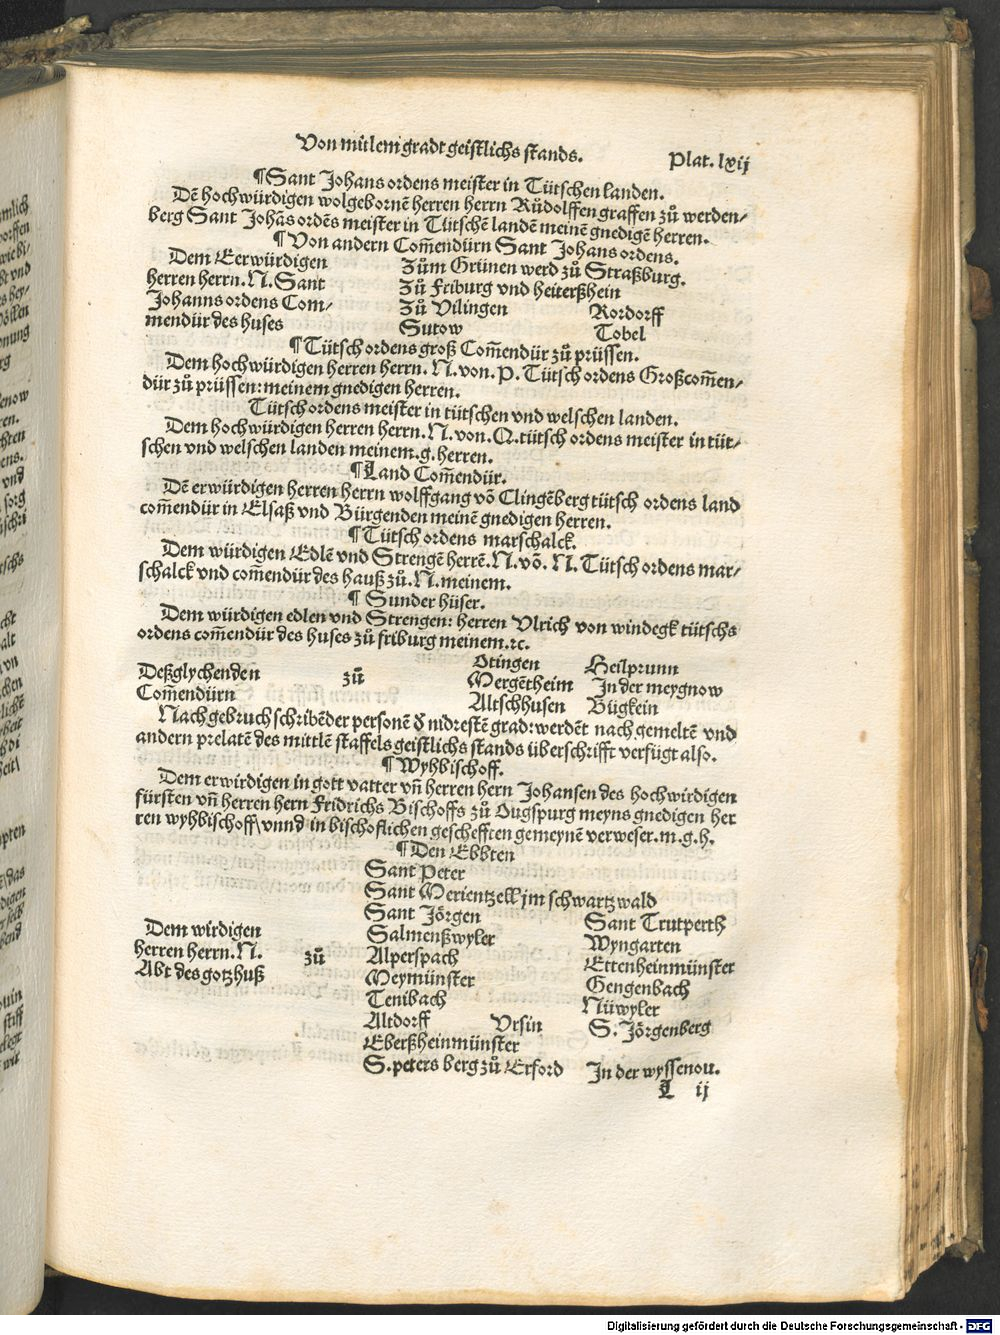 Von mitlem gradt geistlichs stands.
Plat. lxij
¶Sant Johans ordens meister in Tütschen landen.
Dẽ hochwürdigen wolgebornẽ herren herrn Růdolffen graffen zů werden-
berg Sant Johãs ordẽs meister in Tütschẽ landẽ meinẽ gnedigẽ herren.
¶Von andern Com̃endürn Sant Johans ordens.
Dem Eerwürdigen
herren herrn. N. Sant
Johanns ordens Com-
mendür des huses
Zům Grünen werd zů Straßburg.
Zů Friburg vnd heiterßhein
Zů Vilingen Rordorff
Sutow Tobel
¶Tütsch ordens groß Com̃endür zů prüssen.
Dem hochwürdigen herren herrn. N. von. P. Tütsch ordens Großcom̃en-
dür zů prüssen: meinem gnedigen herren.
Tütsch ordens meister in tütschen vnd welschen landen.
Dem hochwürdigen herren herrn. N. von. Q. tütsch ordens meister in tüt-
schen vnd welschen landen meinem .g. herren.
¶Land Com̃endür.
Dẽ erwürdigen herren herrn wolffgang võ Clingẽberg tütsch ordens land
com̃endür in Elsaß vnd Bürgenden meinẽ gnedigen herren.
¶Tütsch ordens marschalck.
Dem würdigen Edlẽ vnd Strengẽ herrẽ. N. võ. N. Tütsch ordens mar-
schalck vnd com̃endür des hauß zů. N. meinem.
¶ Sunder hüser.
Dem würdigen edlen vnd Strengen: herren Vlrich von windegk tütschs
ordens com̃endür des huses zů friburg meinem. ꝛc.
Deßglychenden
Com̃endürn
zů
Otingen Heilprunn
Mergẽtheim In der meygnow
Altschhusen Bügkein
Nachgebruch schribẽder personẽ d̕ nidrestẽ grad: werdẽt nach gemeltẽ vnd
andern prelatẽ des mittlẽ staffels geistlichs stands überschrifft verfügt also.
¶Wyhbischoff.
Dem erwirdigen in gott vatter vñ herren hern Johansen des hochwirdigen
fürsten vñ herren hern Fridrichs Bischoffs zů Ougspurg meyns gnedigen her
ren wyhbischoff\ vnnd in bischoflichen geschefften gemeynẽ verweser. m. g. h.
¶Den Ebbten
Dem wirdigen
herren herrn. N.
Abt des gotzhuß
zů
Sant Peter
Sant Merientzell jm schwartzwald
Sant Jörgen Sant Trutperth
Salmenßwyler Wyngarten
Alperspach Ettenheinmünster
Meymünster Gengenbach
Tenibach Nüwyler
Altdorff Vrsin S. Jörgenberg
Eberßheinmünster
S. peters berg zů Erford In der wyssenou.
L ij
Digitalisierung gefördert durch die Deutsche Forschungsgemeinschaft - DFG